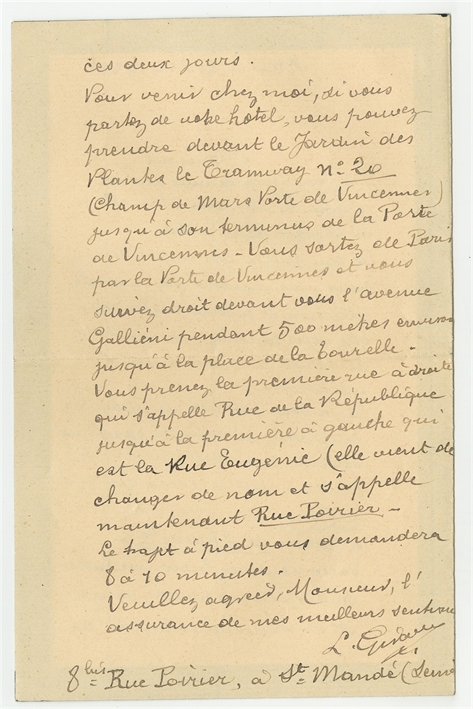 ces deux jours.
Pour venir chez moi, si vous
partez de votre hôtel, vous pouvez
prendre devant le Jardin des
Plantes le Tramway No 20
(Champ de Mars Porte de Vincennes)
jusqu'à son terminus de la Porte
de Vincennes - Vous sortez de Paris
par la Porte de Vincennes et vous
suivez droit devant vous l'avenue
Galliéni pendant 500 mètres environ
jusqu'à la place de la Tourelle -
Vous prenez la première rue à droite
qui s'appelle Rue de la République
jusqu'à la première à gauche qui
est la Rue Eugénie (elle vient de
changer de nom et s'appelle
maintenant Rue Poirier -
Le trajet à pied vous demandera
8 à 10 minutes.
Veuillez agréer, Monsieur, l'
assurance de mes meilleurs sentim
L.
8 bis Rue Poirier, à St Mandé (Seine